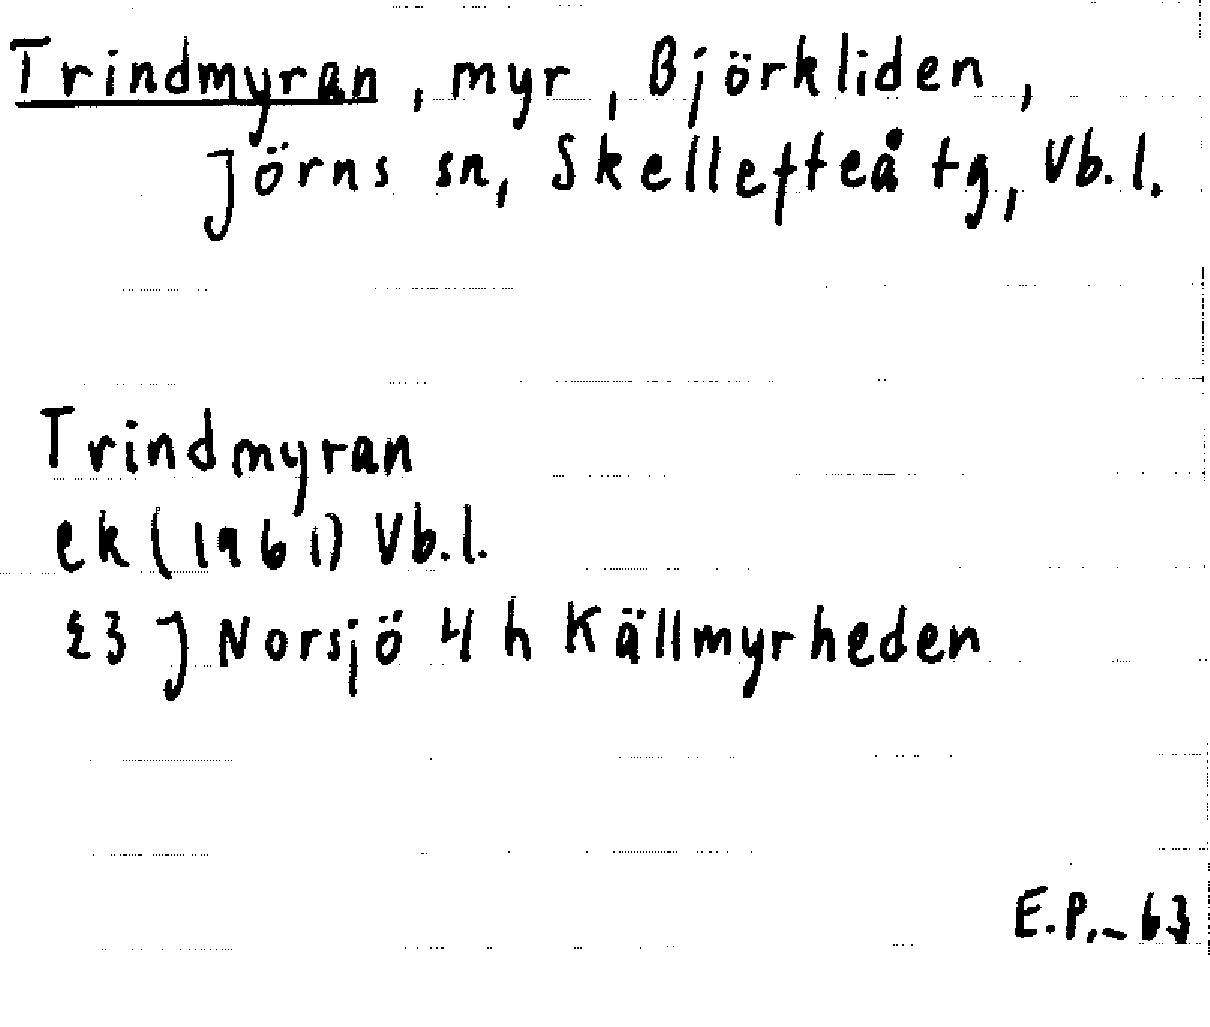 Trindmyran, myr, Björkliden,
Jörns sn, Skellefteå tg, Vb.l.
Trindmyran
ek (1961) Vb.l.
23 J Norsjö 4 h Källmyrheden
E.P.-63